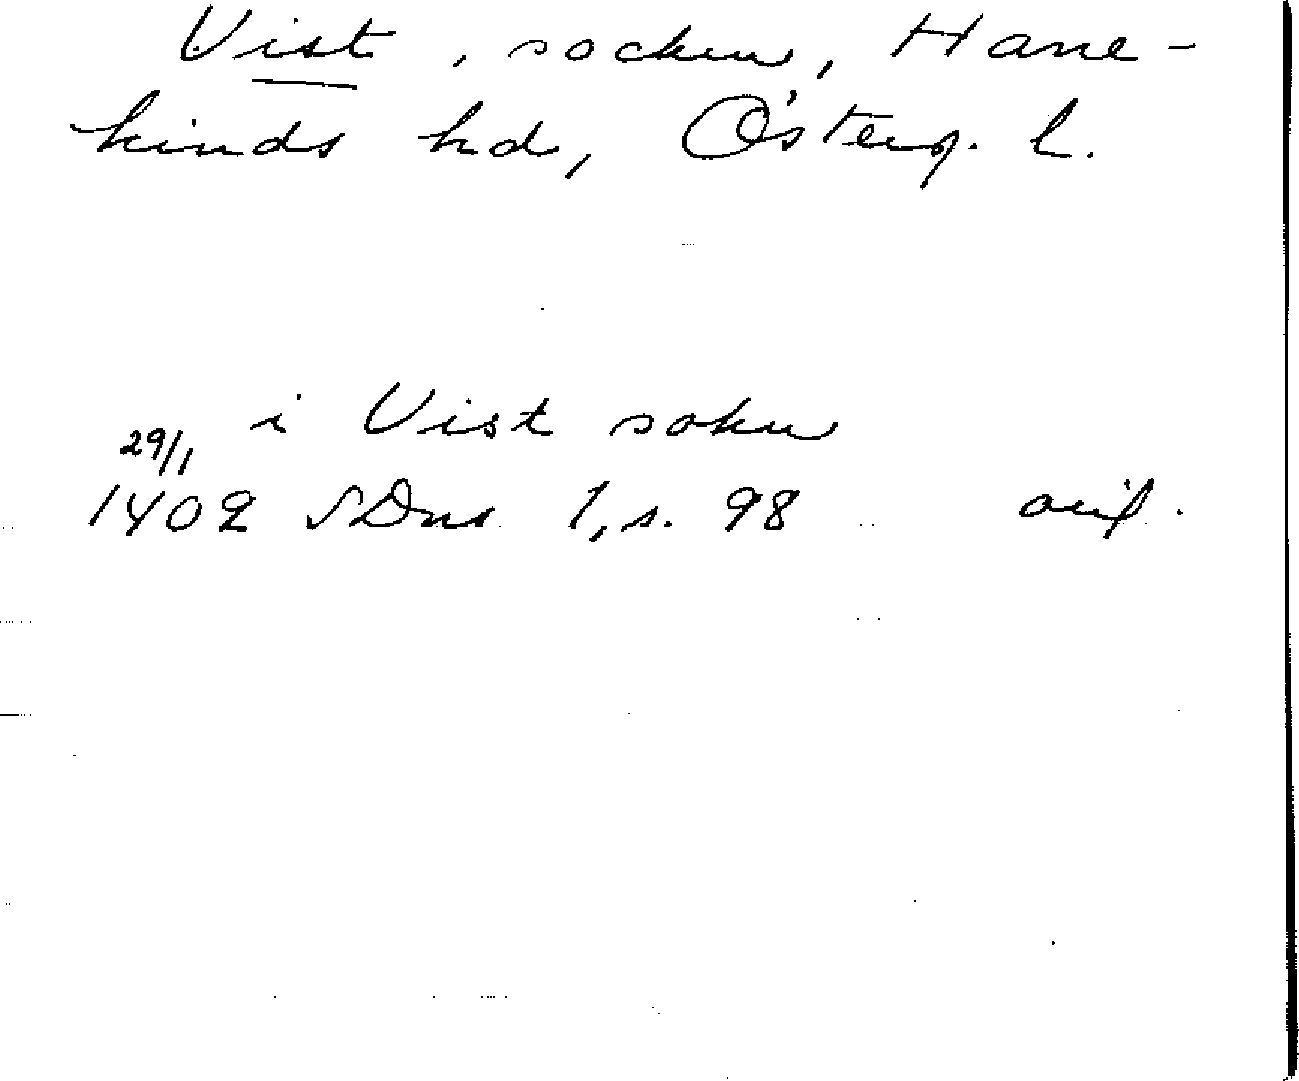 Vist, socken, Hane-
kinds hd, Österg. l.
i Vist sokn
29/1
1402 SDns 1, s. 98 orig.